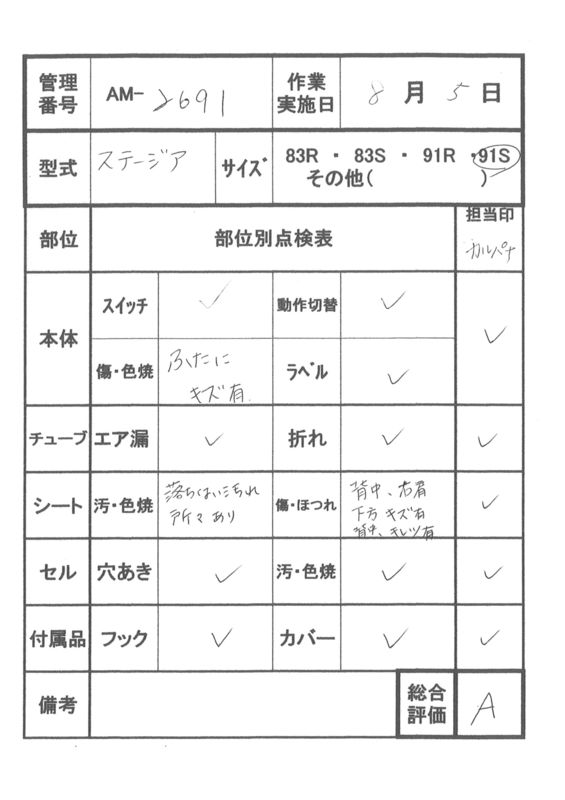 管理番号 AM-2691 作業実施日 8月5日
型式 ステージア サイズ 83R ・ 83S ・ 91R ・ 91S
その他( )
部位 部位別点検表 担当印
カルパナ
本体 スイッチ ✓ 動作切替 ✓ ✓
傷・色焼 ふたに
キズ有. ラベル ✓
チューブ エア漏 ✓ 折れ ✓ ✓
シート 汚・色焼 落ちない汚れ
所々あり 傷・ほつれ 背中、右肩
下方 キズ有
背中、キレツ有 ✓
セル 穴あき ✓ 汚・色焼 ✓ ✓
付属品 フック ✓ カバー ✓ ✓
備考 総合評価 A